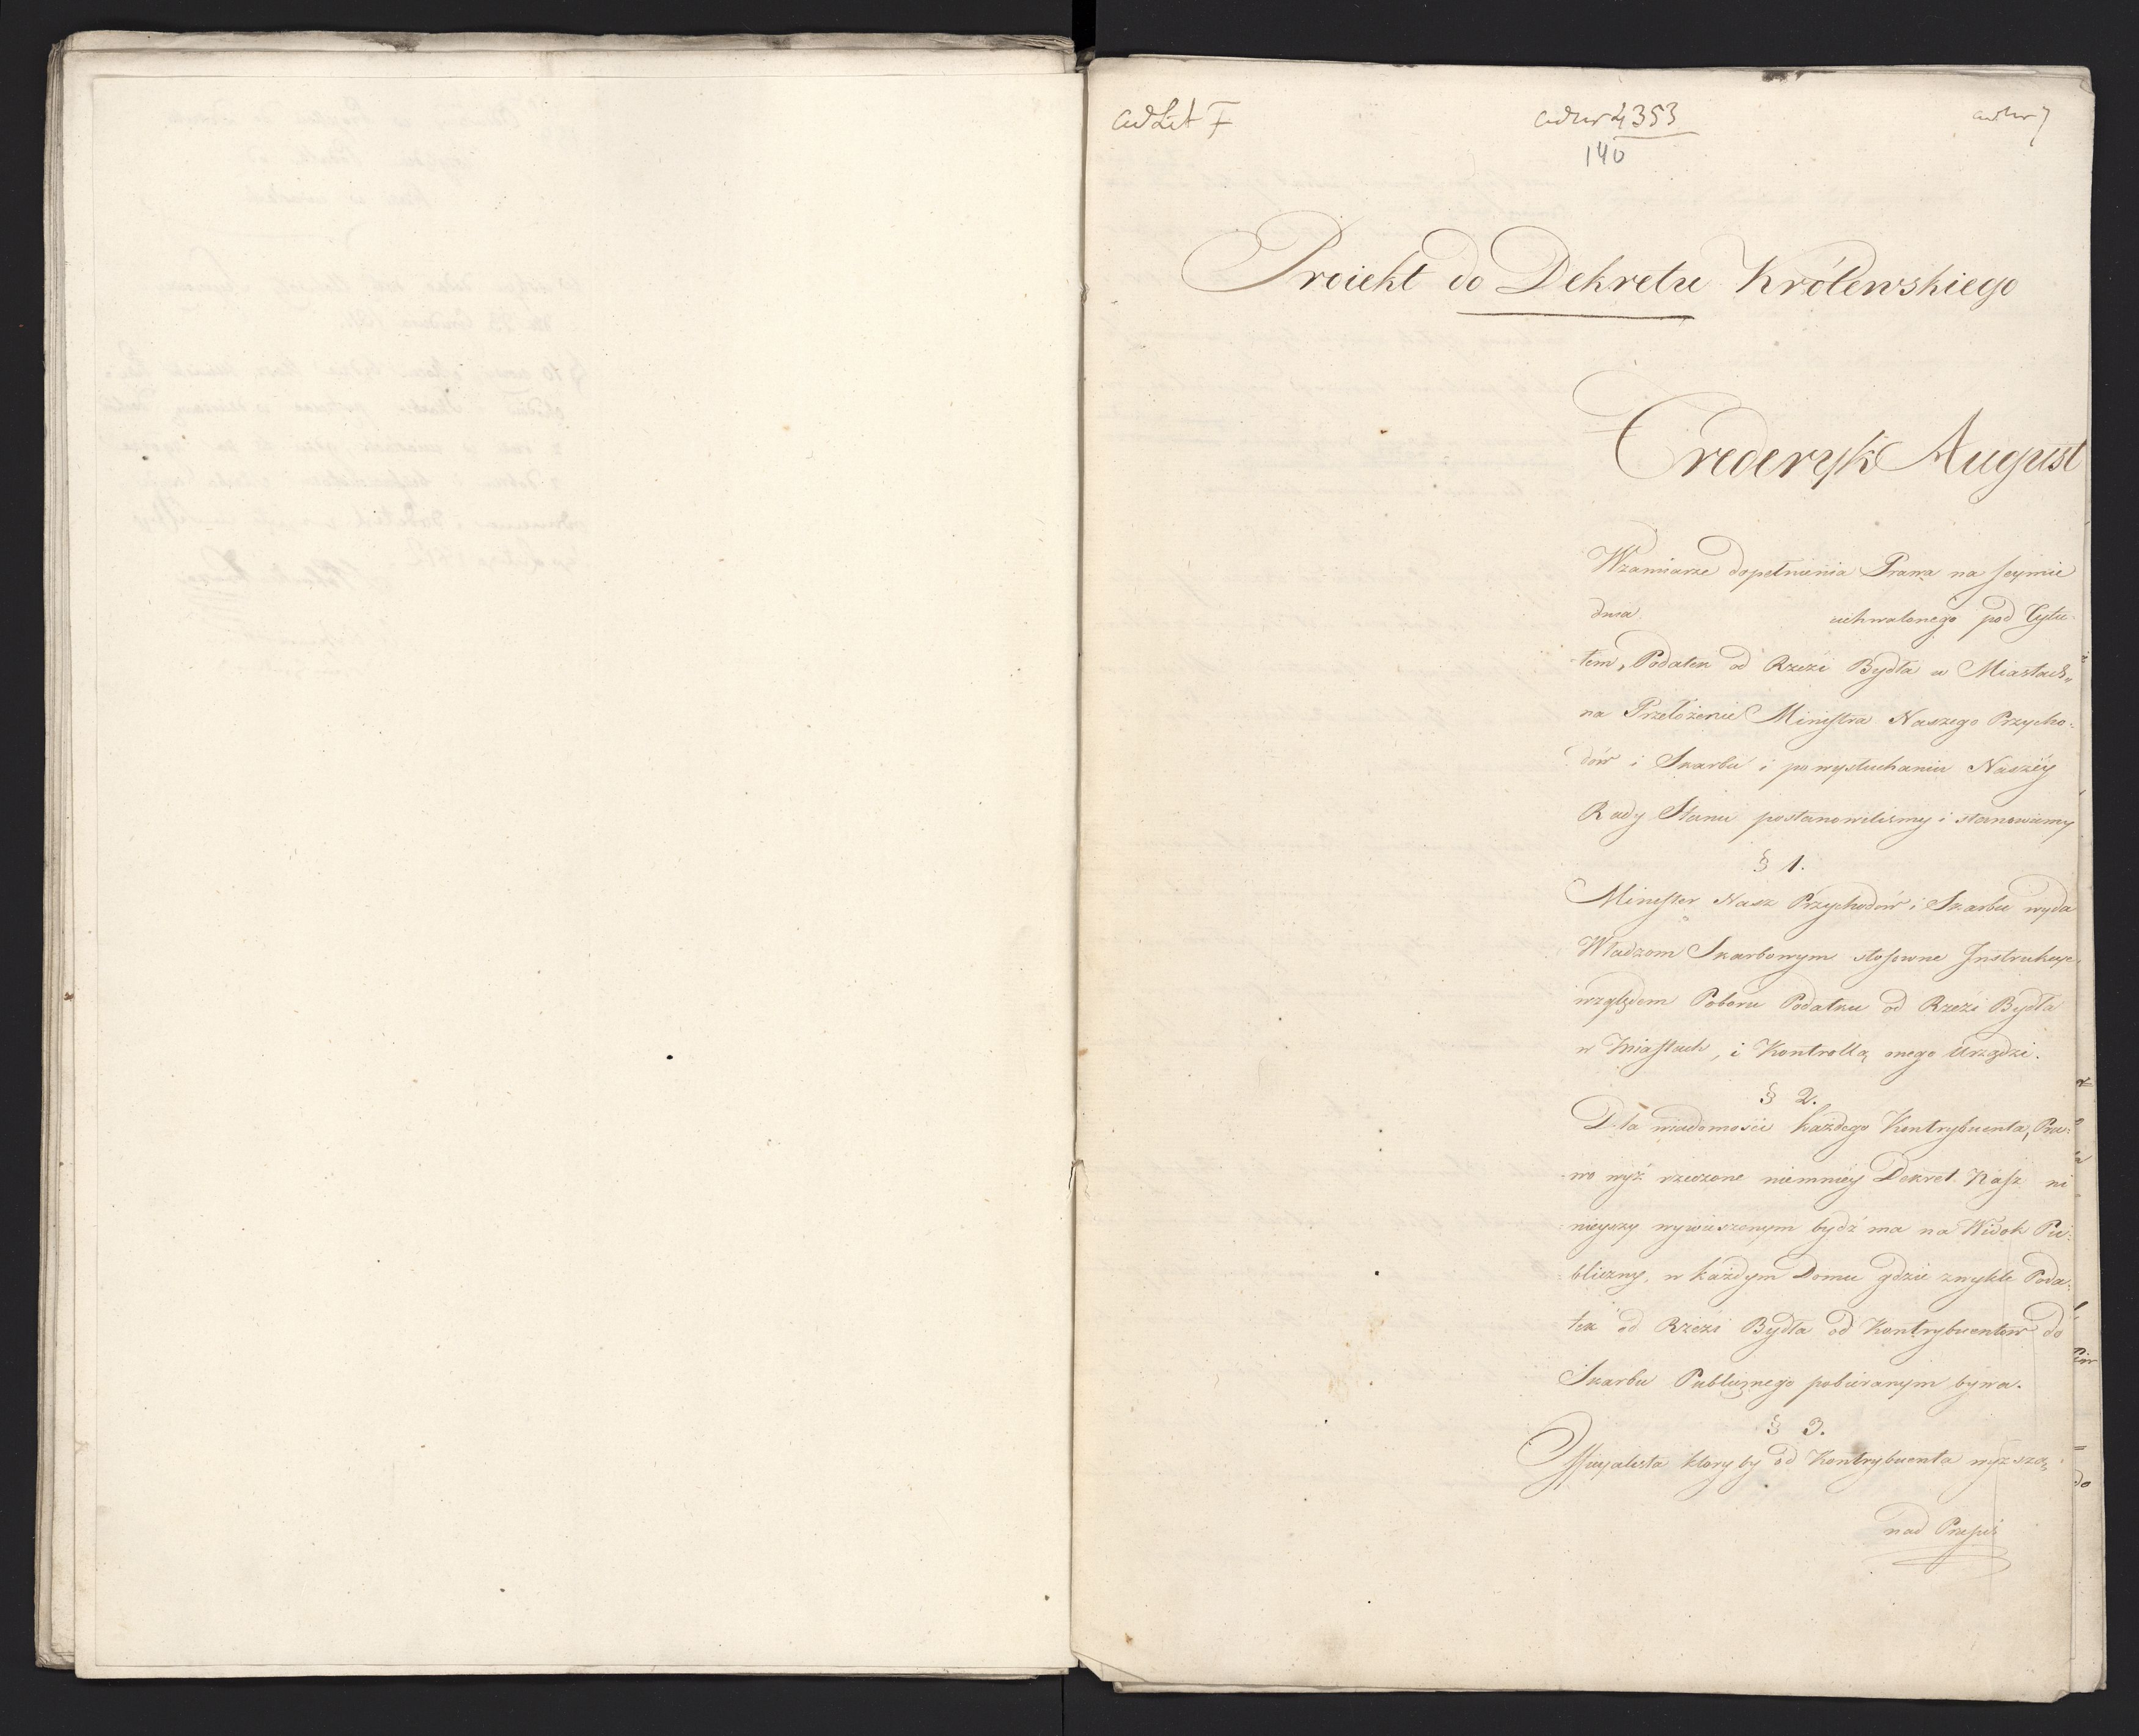 ad Lit F
ad nr 4353
140
ad Nr 7
Proiekt do Dekretu Królewskiego
Frederyk August
W zamiarze dopełnienia Prawa na Seymie
dnia uchwalonego pod Tytu-
łem „Podatek od Rzezi Bydła w Miastach„
na Przełożenie Ministra Naszego Przycho-
dów i Skarbu i po wysłuchaniu Naszéy
Rady Stanu postanowiliśmy i stanowiemy
§ 1.
Minister Nasz Przychodów i Skarbu wyda
Władzom Skarbowym stosowne Instrukcye
względem Poboru Podatku od Rzezi Bydła
w Miastach, i Kontrollą onego Urządzi.
§ 2.
Dla wiadomości każdego Kontrybuenta, Pra-
wo wyż rzeczone niemniéy Dekret Nasz ni
nieyszy wywieszonym bydź ma na Widok Pu-
bliczny, w każdym Domu gdzie zwykle Poda-
tek od Rzezi Bydła od Kontrybuentów do
Skarbu Publicznego pobieranym bywa.
§ 3.
Officyalista który by od Kontrybuenta wyższą
nad Przepis